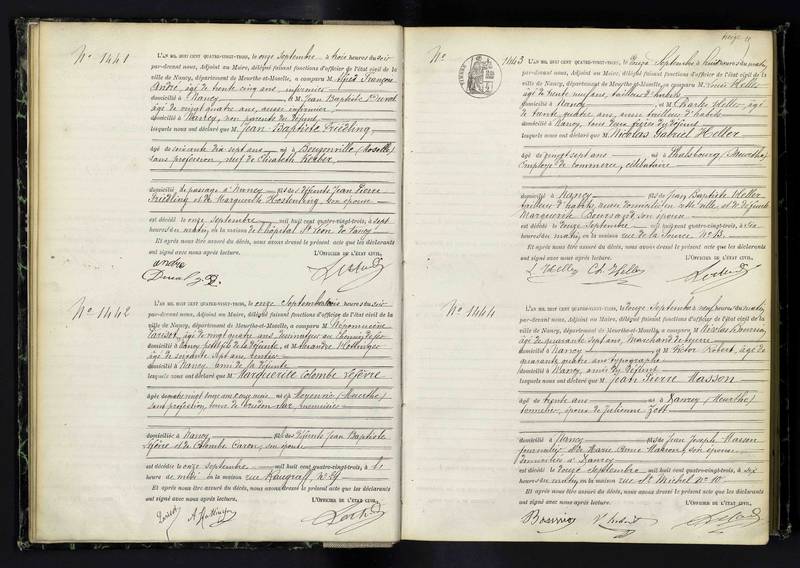 N° 1441
L'AN MIL HUIT CENT QUATRE-VINGT-TROIS, le onze Septembre à trois heures du soir
par-devant nous, Adjoint au Maire, délégué faisant fonctions d'officier de l'état civil de la
ville de Nancy, département de Meurthe-et-Moselle, a comparu M Alfred François
André, âgé de trente cinq ans, infirmier
domicilié à Nancy et M Jean Baptiste
âgé de vingt quatre ans, aussi infirmier
domicilié à Nancy, non parents du défunt
lesquels nous ont déclaré que M Jean Baptiste Friedling
âgé de soixante dix sept ans né à Bouzonville (Moselle)
sans profession, veuf de Elisabeth Kerber
domicilié de passage à Nancy fils des défunts Jean Pierre
Friedling et de Marguerite son épouse
est décédé le onze septembre mil huit cent quatre-vingt-trois, à sept
heures du matin en la maison de l'hôpital St Léon de Nancy
Et après nous être assuré du décès, nous avons dressé le présent acte que les déclarants
ont signé avec nous après lecture. L'OFFICIER DE L'ÉTAT CIVIL,
andré
N° 1442
L'AN MIL HUIT CENT QUATRE-VINGT-TROIS, le onze Septembre trois heures du soir
par-devant nous, Adjoint au Maire, délégué faisant fonctions d'officier de l'état civil de la
ville de Nancy, département de Meurthe-et-Moselle, a comparu M Népomucène
âgé de vingt quatre ans, au chemin de fer
domicilié à Nancy petit fils de la défunte et M Alexandre
âgé de soixante sept ans, rentier
domicilié à Nancy ami de la défunte
lesquels nous ont déclaré que M Marguerite Colombe Lefèvre
âgée de quatre vingt ans onze mois née à Moyenvic (Meurthe)
sans profession, veuve de
domiciliée à Nancy fille des défunts Jean Baptiste
Lefèvre et de Colombe Caron, son épouse
est décédée le onze septembre mil huit cent quatre-vingt-trois, à
heures de midi en la maison rue
Et après nous être assuré du décès, nous avons dressé le présent acte que les déclarants
ont signé avec nous après lecture. L'OFFICIER DE L'ÉTAT CIVIL,
N° 1443
L'AN MIL HUIT CENT QUATRE-VINGT-TROIS, le Douze Septembre à heures du matin,
par-devant nous, Adjoint au Maire, délégué faisant fonctions d'officier de l'état civil de la
ville de Nancy, département de Meurthe-et-Moselle, a comparu M Louis Heller
âgé de trente neuf ans, tailleur d'habits
domicilié à Nancy, et M Charles Heller, âgé
de trente quatre ans, aussi tailleur d'habits
domicilié à Nancy, tous deux frères du défunt
lesquels nous ont déclaré que M Nicolas Gabriel Heller
âgé de vingt sept ans né à Phalsbourg (Meurthe)
Employé de commerce, célibataire
domicilié à Nancy fils de Jean Baptiste Heller
tailleur d'habits, aussi domicilié en cette ville, et de défunte
Marguerite son épouse
est décédé le Douze Septembre mil huit cent quatre-vingt-trois, à
heures du matin, en la maison rue de la Source N° 13
Et après nous être assuré du décès, nous avons dressé le présent acte que les déclarants
ont signé avec nous après lecture. L'OFFICIER DE L'ÉTAT CIVIL,
L Heller Ch. Heller
N° 1444
L'AN MIL HUIT CENT QUATRE-VINGT-TROIS, le Douze Septembre à neuf heures du matin,
par-devant nous, Adjoint au Maire, délégué faisant fonctions d'officier de l'état civil de la
ville de Nancy, département de Meurthe-et-Moselle, a comparu M Nicolas
âgé de quarante sept ans, Marchand de
domicilié à Nancy et M Victor Robert, âgé de
quarante quatre ans typographe
domicilié à Nancy, amis du défunt
lesquels nous ont déclaré que M Jean Pierre Masson
âgé de trente ans né à Xanrey (Meurthe)
tonnelier, époux de Julienne Zott
domicilié à Nancy fils de Jean Joseph Masson
journalier et de Marie Anne son épouse
domiciliés à Xanrey
est décédé le Douze Septembre mil huit cent quatre-vingt-trois, à six
heures du matin, en la maison rue St Michel N° 10
Et après nous être assuré du décès, nous avons dressé le présent acte que les déclarants
ont signé avec nous après lecture. L'OFFICIER DE L'ÉTAT CIVIL,